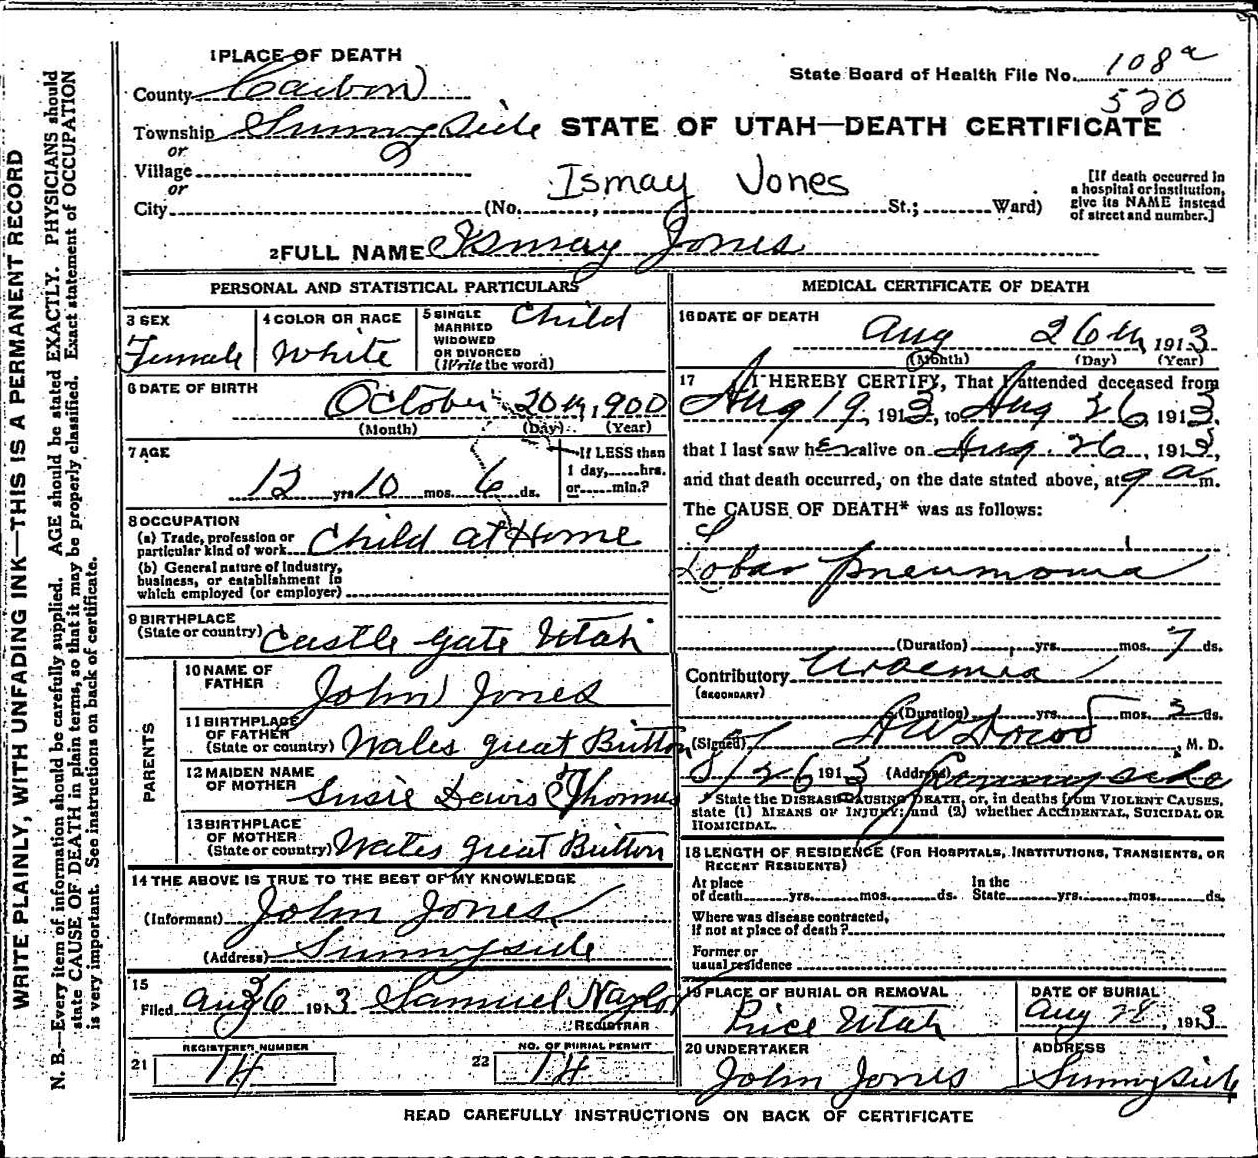 1 PLACE OF DEATH
State Board of Health File No. 108a
County Carbon
520
Township Sunnyside
STATE OF UTAH—DEATH CERTIFICATE
or
Village
or
Ismay Jones
[If death occurred in a hospital or institution, give its NAME instead of street and number.]
City (No. , St.; Ward)
2 FULL NAME Ismay Jones
PERSONAL AND STATISTICAL PARTICULARS
3 SEX Female
4 COLOR OR RACE White
5 SINGLE MARRIED WIDOWED OR DIVORCED (Write the word) Child
6 DATE OF BIRTH October 20th, 1900
(Month) (Day) (Year)
7 AGE
12 yrs 10 mos. 6 ds.
If LESS than 1 day, hrs. or min.?
8 OCCUPATION
(a) Trade, profession or particular kind of work Child at Home
(b) General nature of Industry, business, or establishment in which employed (or employer)
9 BIRTHPLACE
(State or country) Castle Gate Utah
PARENTS
10 NAME OF FATHER John Jones
11 BIRTHPLACE OF FATHER (State or country) Wales great Britton
12 MAIDEN NAME OF MOTHER Susie Davis Thomas
13 BIRTHPLACE OF MOTHER (State or country) Wales great Britton
14 THE ABOVE IS TRUE TO THE BEST OF MY KNOWLEDGE
(Informant) John Jones
(Address) Sunnyside
15
Filed Aug 26 1913 Samuel Naylor
REGISTRAR
21 REGISTERED NUMBER 14
22 NO. OF BURIAL PERMIT 14
MEDICAL CERTIFICATE OF DEATH
16 DATE OF DEATH
Aug 26th, 1913
(Month) (Day) (Year)
17 I HEREBY CERTIFY, That I attended deceased from
Aug 19, 1913, to Aug 26, 1913,
that I last saw her alive on Aug 26, 1913,
and that death occurred, on the date stated above, at 9 a m.
The CAUSE OF DEATH* was as follows:
Lobar pneumonia
(Duration) yrs. mos. 7 ds.
Contributory Uraemia
(SECONDARY)
(Duration) yrs. mos. 3 ds.
(Signed) , M. D.
8/26 1913 (Address) Sunnyside
* State the DISEASE CAUSING DEATH, or, in deaths from VIOLENT CAUSES, state (1) MEANS OF INJURY; and (2) whether ACCIDENTAL, SUICIDAL OR HOMICIDAL.
18 LENGTH OF RESIDENCE (FOR HOSPITALS, INSTITUTIONS, TRANSIENTS, OR RECENT RESIDENTS)
At place of death yrs. mos. ds. In the State yrs. mos. ds.
Where was disease contracted, if not at place of death?
Former or usual residence
19 PLACE OF BURIAL OR REMOVAL
Price Utah
DATE OF BURIAL
Aug 28, 1913
20 UNDERTAKER
John Jones
ADDRESS
Sunnyside
READ CAREFULLY INSTRUCTIONS ON BACK OF CERTIFICATE
WRITE PLAINLY, WITH UNFADING INK—THIS IS A PERMANENT RECORD
N. B.—Every item of information should be carefully supplied. AGE should be stated EXACTLY. PHYSICIANS should
state CAUSE OF DEATH in plain terms, so that it may be properly classified. Exact statement of OCCUPATION
is very important. See instructions on back of certificate.